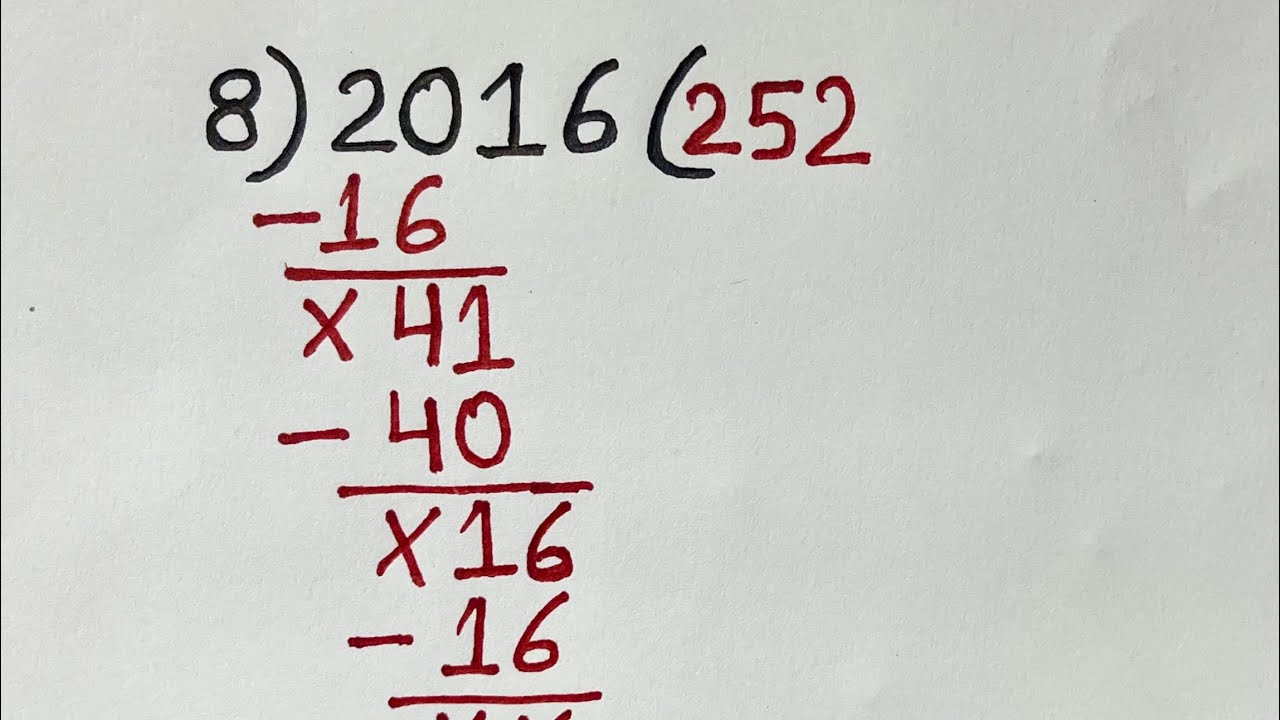 8)2016(252
-16
x41
-40
x16
-16
xx